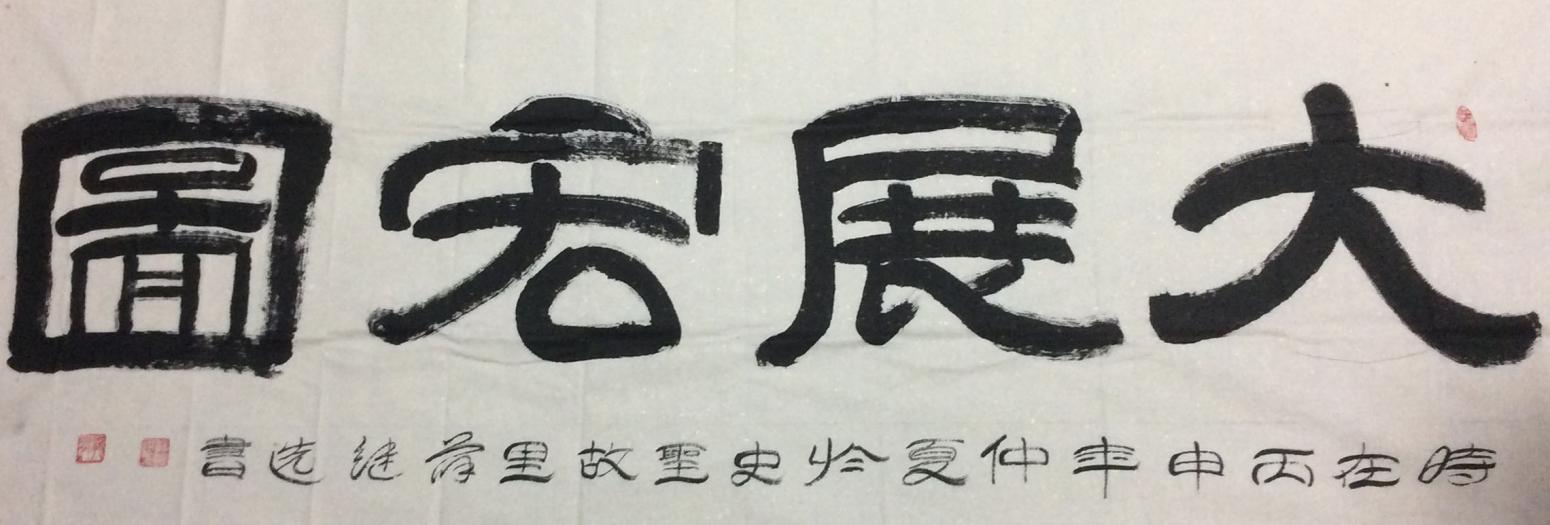 大展宏圖
時在丙申年仲夏於史聖故里薛继选書